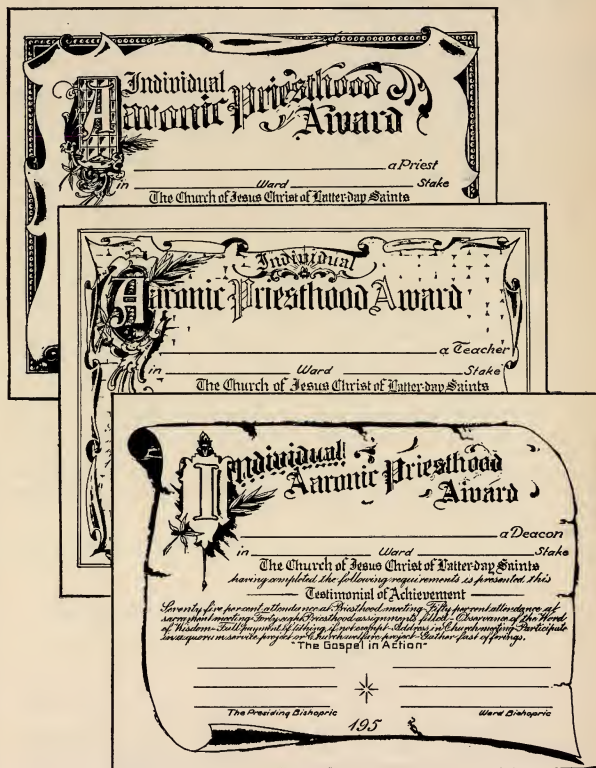 Individual
Aaronic Priesthood
Award
a Priest
in Ward Stake
The Church of Jesus Christ of Latter-day Saints
Individual
Aaronic Priesthood Award
a Teacher
in Ward Stake
The Church of Jesus Christ of Latter-day Saints
Individual
Aaronic Priesthood
Award
a Deacon
in Ward Stake
The Church of Jesus Christ of Latter-day Saints
having completed the following requirements is presented this
Testimonial of Achievement
Seventy five percent attendance at Priesthood meeting - Fifty percent attendance at
sacrament meeting - Forty eight Priesthood assignments filled - Observance of the Word
of Wisdom - Full payment of tithing, if not exempt - Address in Church meeting - Participate
in a quorum service project or Church welfare project - Gather fast offerings.
"The Gospel in Action"
The Presiding Bishopric Ward Bishopric
195